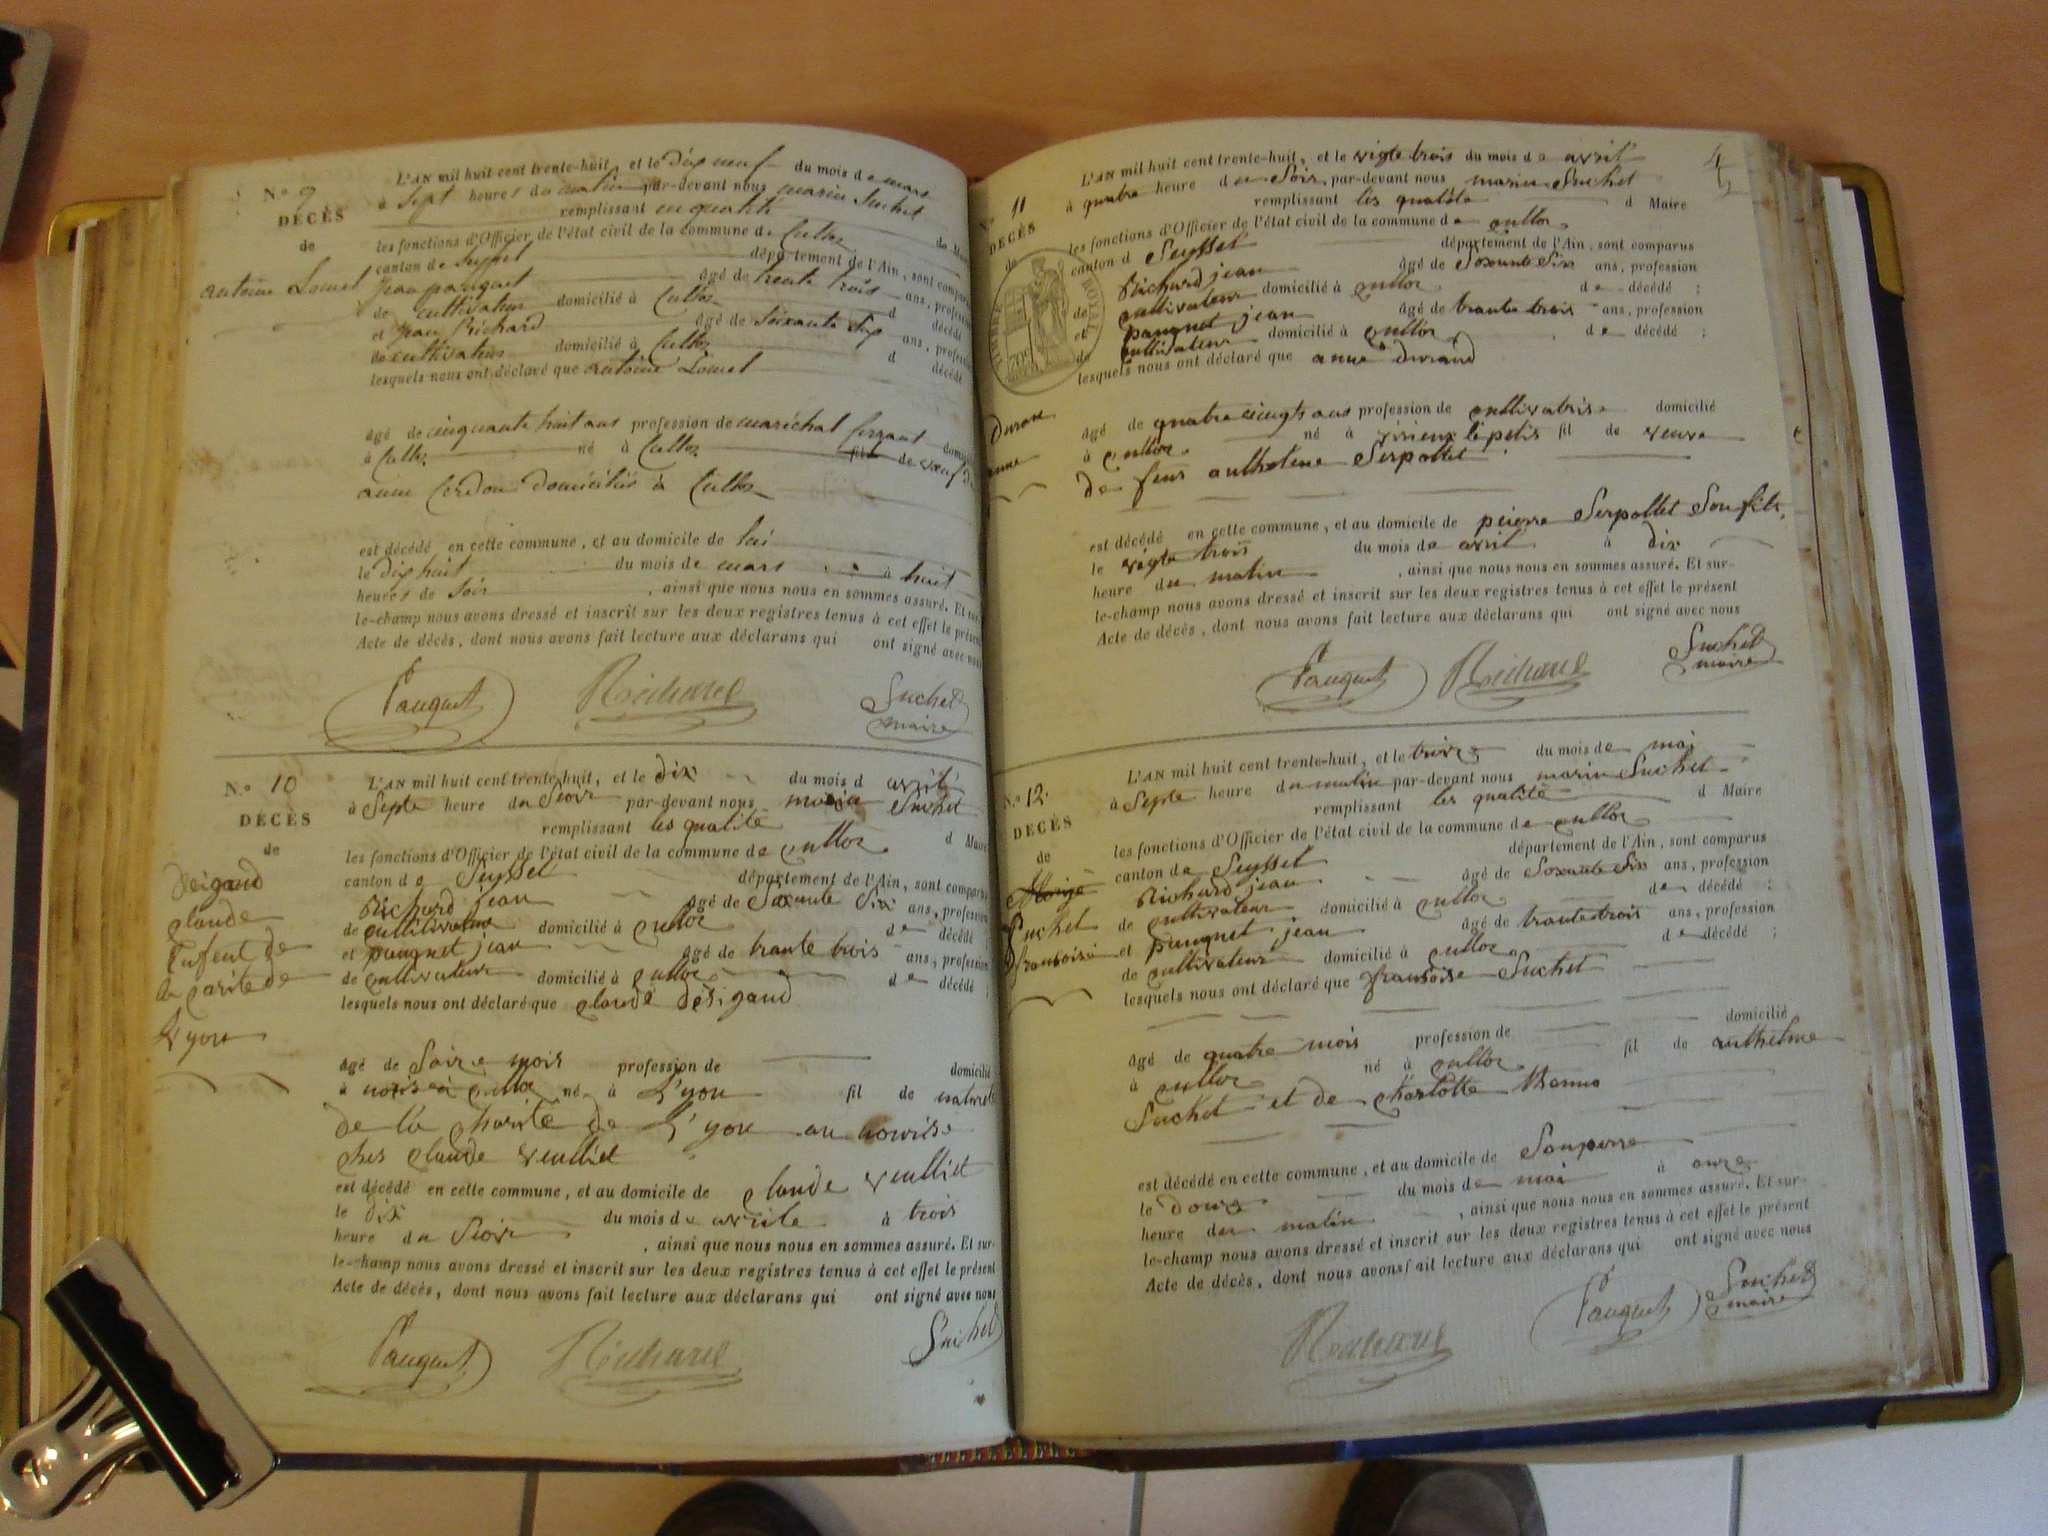 N.º 9
DÉCÈS
de
antoine Louet
L'AN mil huit cent trente-huit, et le dix neuf du mois de mars
à sept heures du matin par-devant nous marin Suchet
remplissant en qualité de Maire
les fonctions d'Officier de l'état civil de la commune de Culloz
canton de Seyssel département de l'Ain, sont comparus
Jean pauquet âgé de trente trois ans, profession
de cultivateur domicilié à Culloz d décédé
et Jean Richard âgé de soixante six ans, profession
de cultivateur domicilié à Culloz d décédé
lesquels nous ont déclaré que antoine Louet
âgé de cinquante huit ans profession de maréchal ferrant domicilié
à Culloz né à Culloz fils de veuf d'
anne Cerdon domiciliés à Culloz
est décédé en cette commune, et au domicile de lui
le dix huit du mois de mars à huit
heures de soir , ainsi que nous nous en sommes assuré. Et sur-
le-champ nous avons dressé et inscrit sur les deux registres tenus à cet effet le présent
Acte de décès, dont nous avons fait lecture aux déclarans qui ont signé avec nous
Pauquet Richard Suchet
maire
N.º 10
DÉCÈS
de
Désigaud
claude
Enfent de
la carite de
L'yon
L'AN mil huit cent trente-huit, et le dix du mois d avrile
à Septe heure du Soir par-devant nous marin Suchet
remplissant les qualité d Maire
les fonctions d'Officier de l'état civil de la commune de culloz
canton de Seyssel département de l'Ain, sont comparus
Richard jean âgé de Soxante Six ans, profession
de cultivateur domicilié à culloz de décédé ;
et pauquet jean âgé de trante trois ans, profession
de cultivateur domicilié à culloz de décédé ;
lesquels nous ont déclaré que claude désigaud
âgé de mois profession de domicilié
à culloz né à L'yon fil de
de la charité de L'yon au nourise
ches claude veulliet
est décédé en cette commune, et au domicile de claude veulliet
le dix du mois de avrile à trois
heure du Soir , ainsi que nous nous en sommes assuré. Et sur-
le-champ nous avons dressé et inscrit sur les deux registres tenus à cet effet le présent
Acte de décès, dont nous avons fait lecture aux déclarans qui ont signé avec nous
Pauquet Richard Suchet
4
N.º 11
DÉCÈS
de
TIMBRE ROYAL
70C
Durand
anne
L'AN mil huit cent trente-huit, et le vigte trois du mois de avril
à quatre heure du Soir par-devant nous marin Suchet
remplissant les qualité d Maire
les fonctions d'Officier de l'état civil de la commune de culloz
canton d Seyssel département de l'Ain, sont comparus
Richard jean âgé de Soxante Six ans, profession
de cultivateur domicilié à culloz de décédé ;
et pauquet jean âgé de trante trois ans, profession
de cultivateur domicilié à culloz de décédé ;
lesquels nous ont déclaré que anne durand
âgé de quatre vingts ans profession de cultivatrise domicilié
à culloz né à virieux le petit fil de veuve
de feus anthelme Serpollet
est décédé en cette commune, et au domicile de peierre Serpollet Son fils,
le vigte trois du mois de avril à dix
heure du matin , ainsi que nous nous en sommes assuré. Et sur-
le-champ nous avons dressé et inscrit sur les deux registres tenus à cet effet le présent
Acte de décès, dont nous avons fait lecture aux déclarans qui ont signé avec nous
Pauquet Richard Suchet
maire
N.º 12
DÉCÈS
de
Suchet
fransoise
L'AN mil huit cent trente-huit, et le treize du mois de mai
à Septe heure du matin par-devant nous marin Suchet
remplissant les qualité d Maire
les fonctions d'Officier de l'état civil de la commune de culloz
canton de Seyssel département de l'Ain, sont comparus
Richard jean âgé de Soxante Six ans, profession
de cultivateur domicilié à culloz de décédé ;
et pauquet jean âgé de trante trois ans, profession
de cultivateur domicilié à culloz de décédé ;
lesquels nous ont déclaré que fransoise Suchet
âgé de quatre mois profession de domicilié
à culloz né à culloz fil de anthelme
Suchet et de charlotte
est décédé en cette commune, et au domicile de Son perre
le douze du mois de mai à onze
heure du matin , ainsi que nous nous en sommes assuré. Et sur-
le-champ nous avons dressé et inscrit sur les deux registres tenus à cet effet le présent
Acte de décès, dont nous avons fait lecture aux déclarans qui ont signé avec nous
Richard Pauquet Suchet
maire